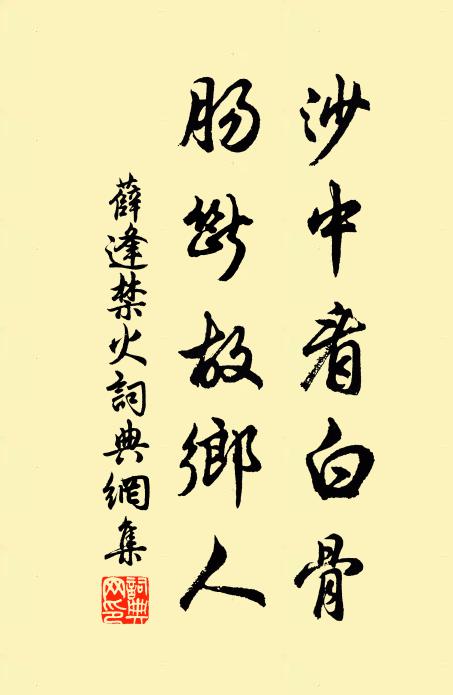 沙中看白骨
腸斷故鄉人
薛逢禁火詞典網集
詞典網印